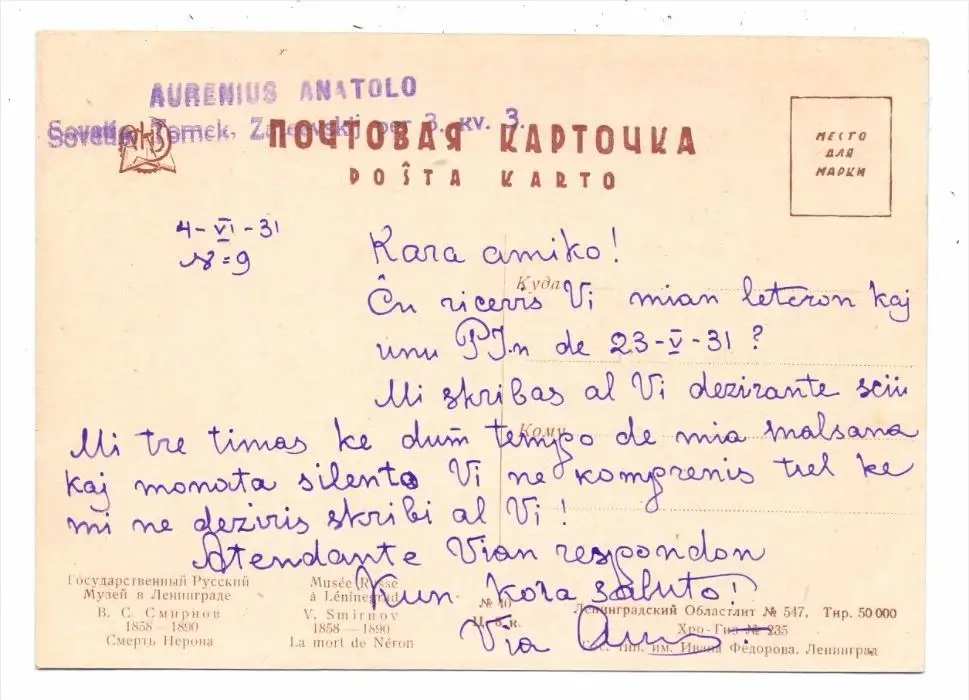 AURENIUS ANATOLO
Sovetio, Tomsk, per 3. kv. 3.
ПОЧТОВАЯ КАРТОЧКА
POŜTA KARTO
МЕСТО
ДЛЯ
МАРКИ
4-VI-31
N=9
Kara amiko!
Куда
Ĉu ricevis Vi mian leteron kaj
unu PI.n de 23-V-31?
Mi skribas al Vi dezirante scii
Кому
Mi tre timas ke dum tempo de mia malsana
kaj monata silento Vi ne komprenis tiel ke
mi ne deziris skribi al Vi!
Atendante Vian respondon
Kun kora saluto!
Via
Государственный Русский
Музей в Ленинграде
В. С. Смирнов
1858 – 1890
Смерть Нерона
Musée Russe
à Léningrad
V. Smirnov
1858 – 1890
La mort de Néron
№ 40
Ц. 8 к.
Ленинградский Областлит № 547. Тир. 50 000
Хро-Гиз № 235
тип. им. Ивана Федорова. Ленинград